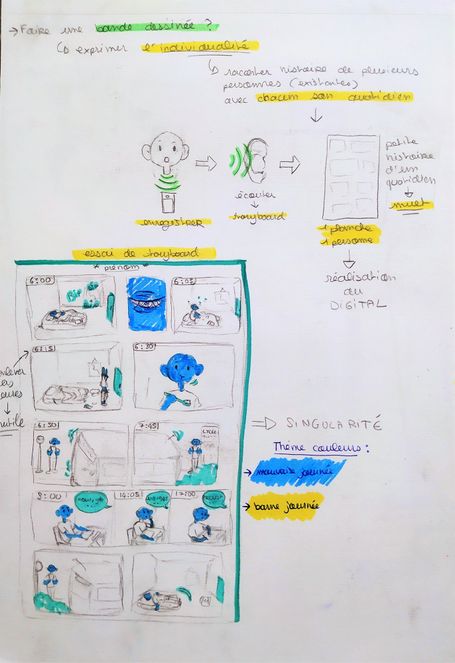 → Faire une bande dessinée ?
↳ exprimer l'individualité
↳ raconter histoire de plusieurs
personnes (existantes)
avec chacun son quotidien
petite
histoire
d'un
quotidien
muet
écouter
enregistrer
storyboard
1 planche
1 personne
réalisation
au
DIGITAL
essai de storyboard
* prénom *
6:00
6:05
6:15
6:30
⇒ SINGULARITÉ
6:50
7:45
Thème couleurs :
→ mauvaise journée
8:00
14:05
17:00
→ bonne journée